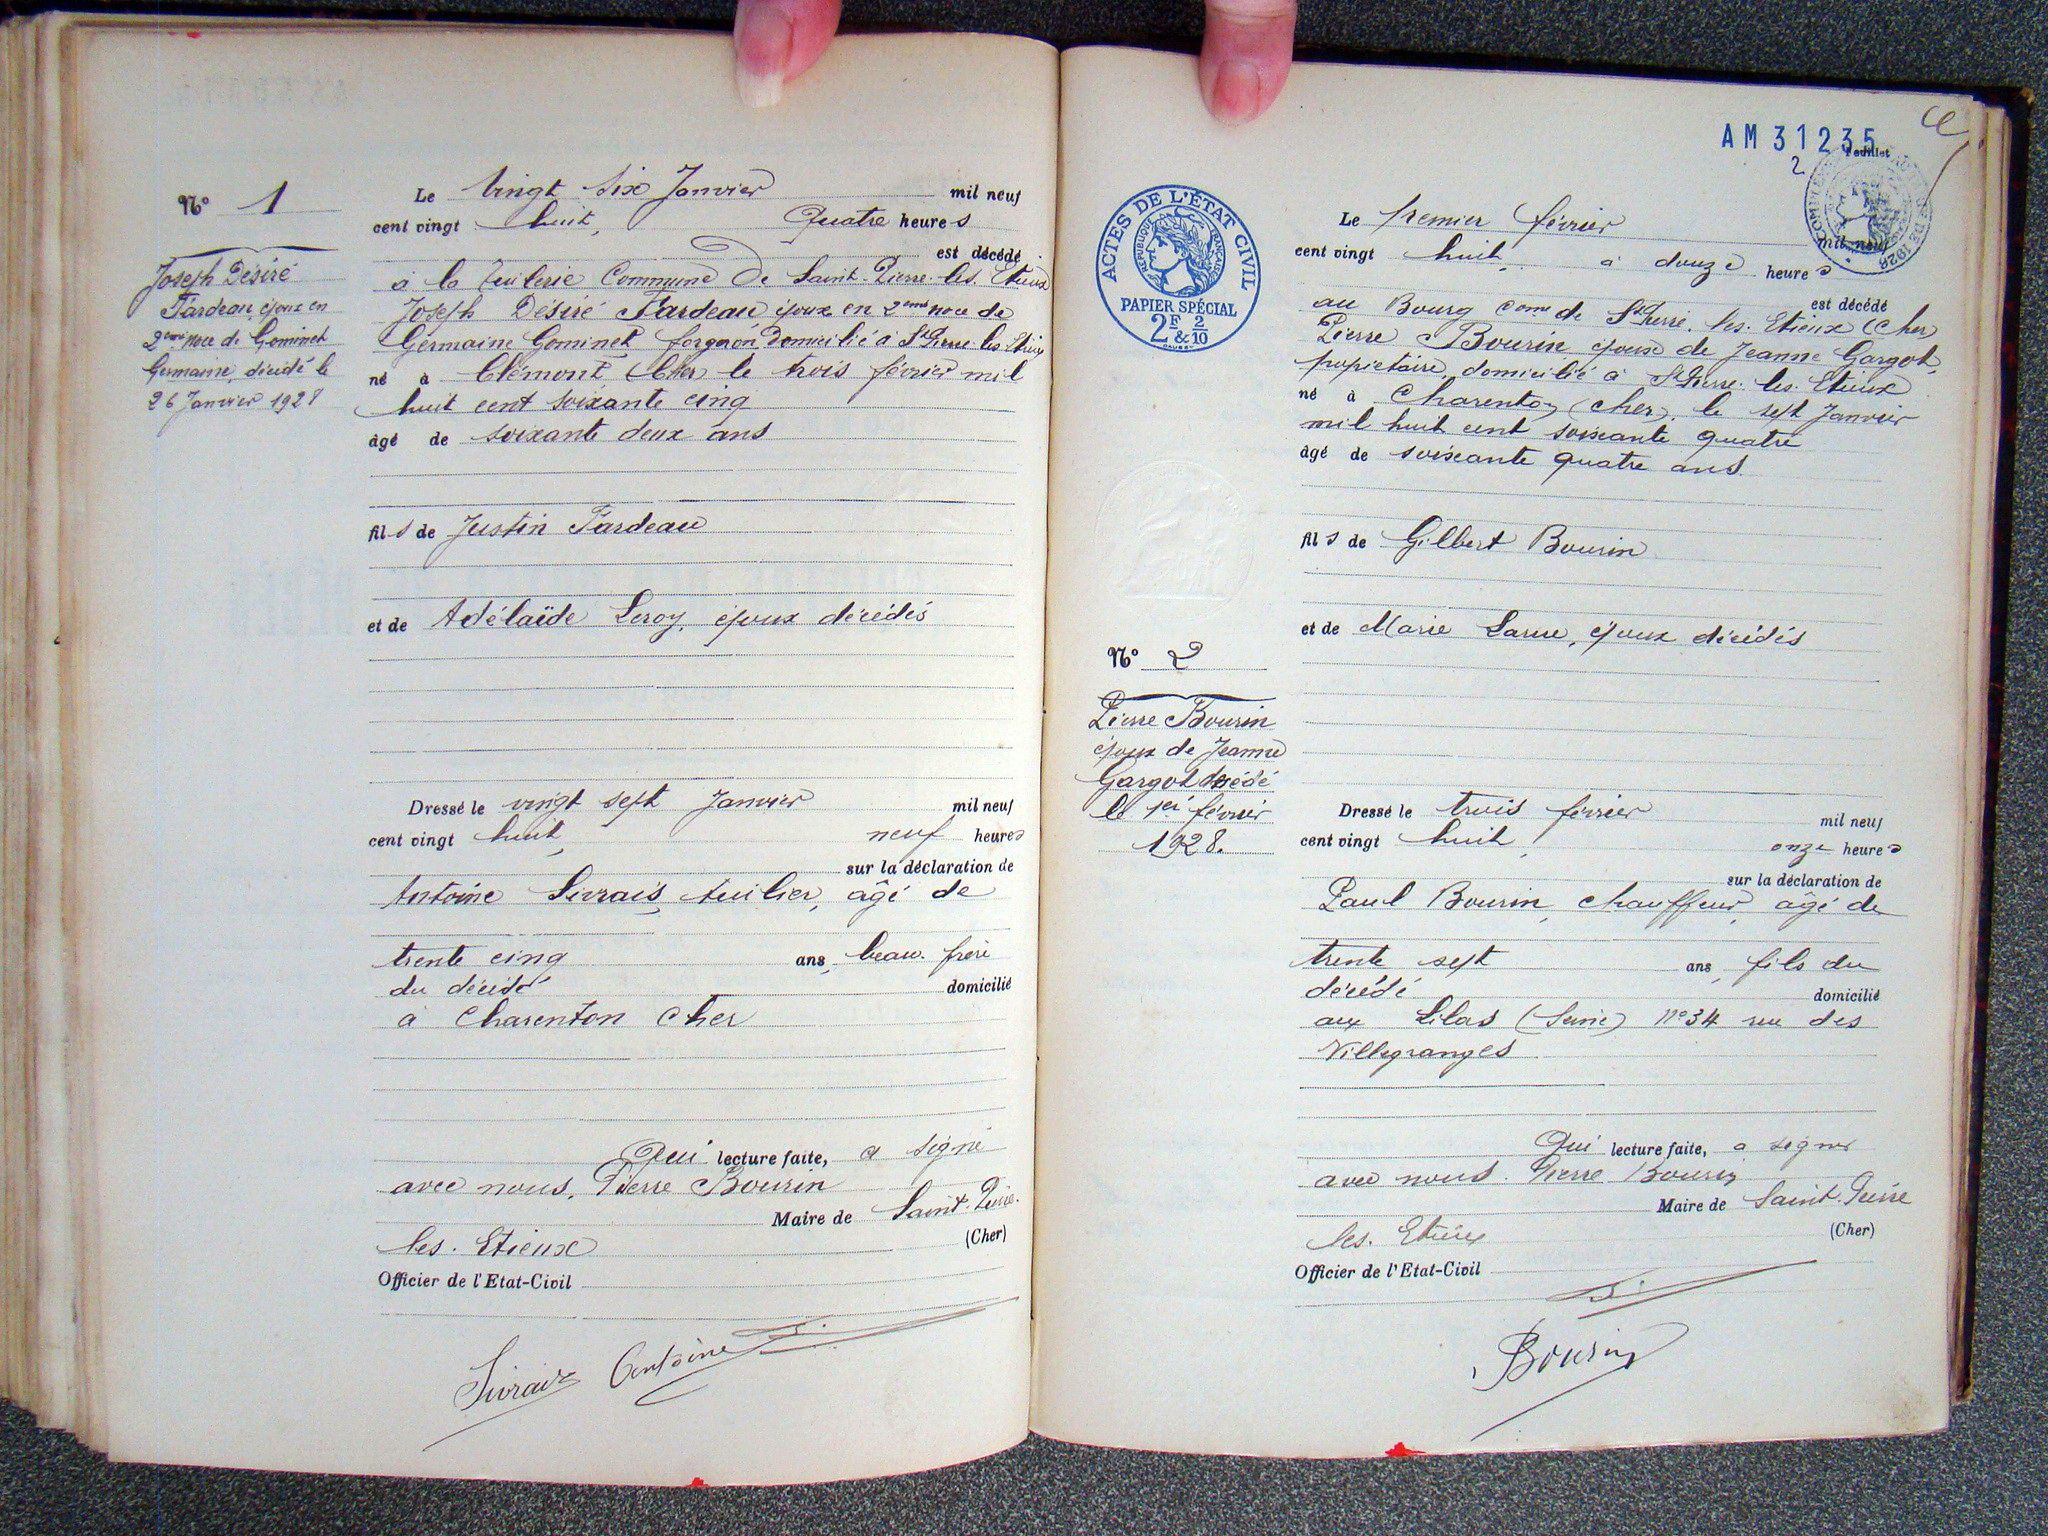 N° 1
Joseph Désiré
Fardeau, époux en
2ème noce de Gominet
Germaine, décédé le
26 Janvier 1928
Le vingt six Janvier mil neuf
cent vingt huit, Quatre heures
est décédé
à la Tuilerie Commune de Saint-Pierre-les-Etieux
Joseph Désiré Fardeau époux en 2ème noce de
Germaine Gominet, forgeron, domicilié à St Pierre les Etieux
né à Clémont (Cher) le trois février mil
huit cent soixante cinq
âgé de soixante deux ans
fils de Justin Fardeau
et de Adélaïde Leroy, époux décédés
Dressé le vingt sept Janvier mil neuf
cent vingt huit, neuf heures
sur la déclaration de
Antoine Sivrais, tuilier, âgé de
trente cinq ans, beau-frère
du décédé domicilié
à Charenton Cher
Qui lecture faite, a signé
avec nous, Pierre Bourin
Maire de Saint-Pierre-
les-Etieux (Cher)
Officier de l'Etat-Civil
Sivrais Antoine
AM 31235
Feuillet
2
ACTES DE L'ÉTAT CIVIL
RÉPUBLIQUE FRANÇAISE
PAPIER SPÉCIAL
2F & 2/10
N° 2
Pierre Bourin
époux de Jeanne
Gargot décédé
le 1er février
1928.
Le premier février mil neuf
cent vingt huit, à douze heures
est décédé
au Bourg Com^ne de St Pierre-les-Etieux (Cher)
Pierre Bourin époux de Jeanne Gargot,
propriétaire, domicilié à St Pierre-les-Etieux
né à Charenton (Cher), le sept Janvier
mil huit cent soixante quatre
âgé de soixante quatre ans.
fils de Gilbert Bourin
et de Marie Larue, époux décédés
Dressé le trois février mil neuf
cent vingt huit, onze heures
sur la déclaration de
Paul Bourin, chauffeur, âgé de
trente sept ans, fils du
décédé domicilié
aux Lilas (Seine) N° 34 rue des
Villegranges
Qui lecture faite, a signer
avec nous. Pierre Bourin
Maire de Saint-Pierre
les-Etieux (Cher)
Officier de l'Etat-Civil
Bourin